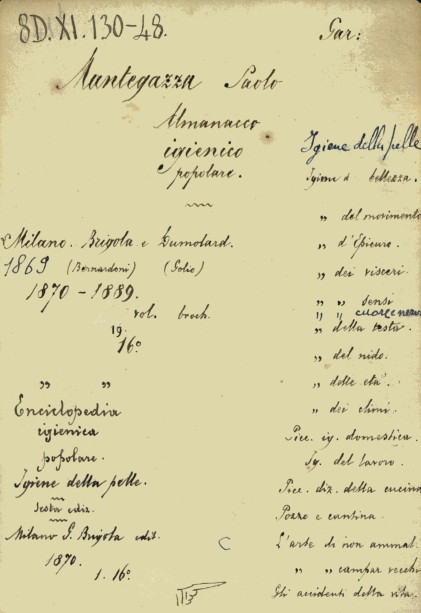 8D. XI. 130-48.
Gar:
Mantegazza Paolo
Almanacco
igienico
popolare.
Milano. Brigola e Dumolard.
1869 (Bernardoni) (Golio)
1870 - 1889.
vol. broch.
19
16º.
" "
Enciclopedia
igienica
popolare.
Igiene della pelle.
Sesta ediz.
Milano G. Brigola edit.
1870.
1. 16º.
Igiene della pelle
Igiene d. bellezza.
" del movimento
" d'Epicuro.
" dei visceri.
" " sensi
" " cuore e nervi
" della testa.
" del nido.
" delle età.
" dei climi.
Picc. ig. domestica.
Ig. del lavoro.
Picc. diz. della cucina
Pozzo e cantina.
L'arte di non ammal.
" " campar vecchi
Gli accidenti della vita.